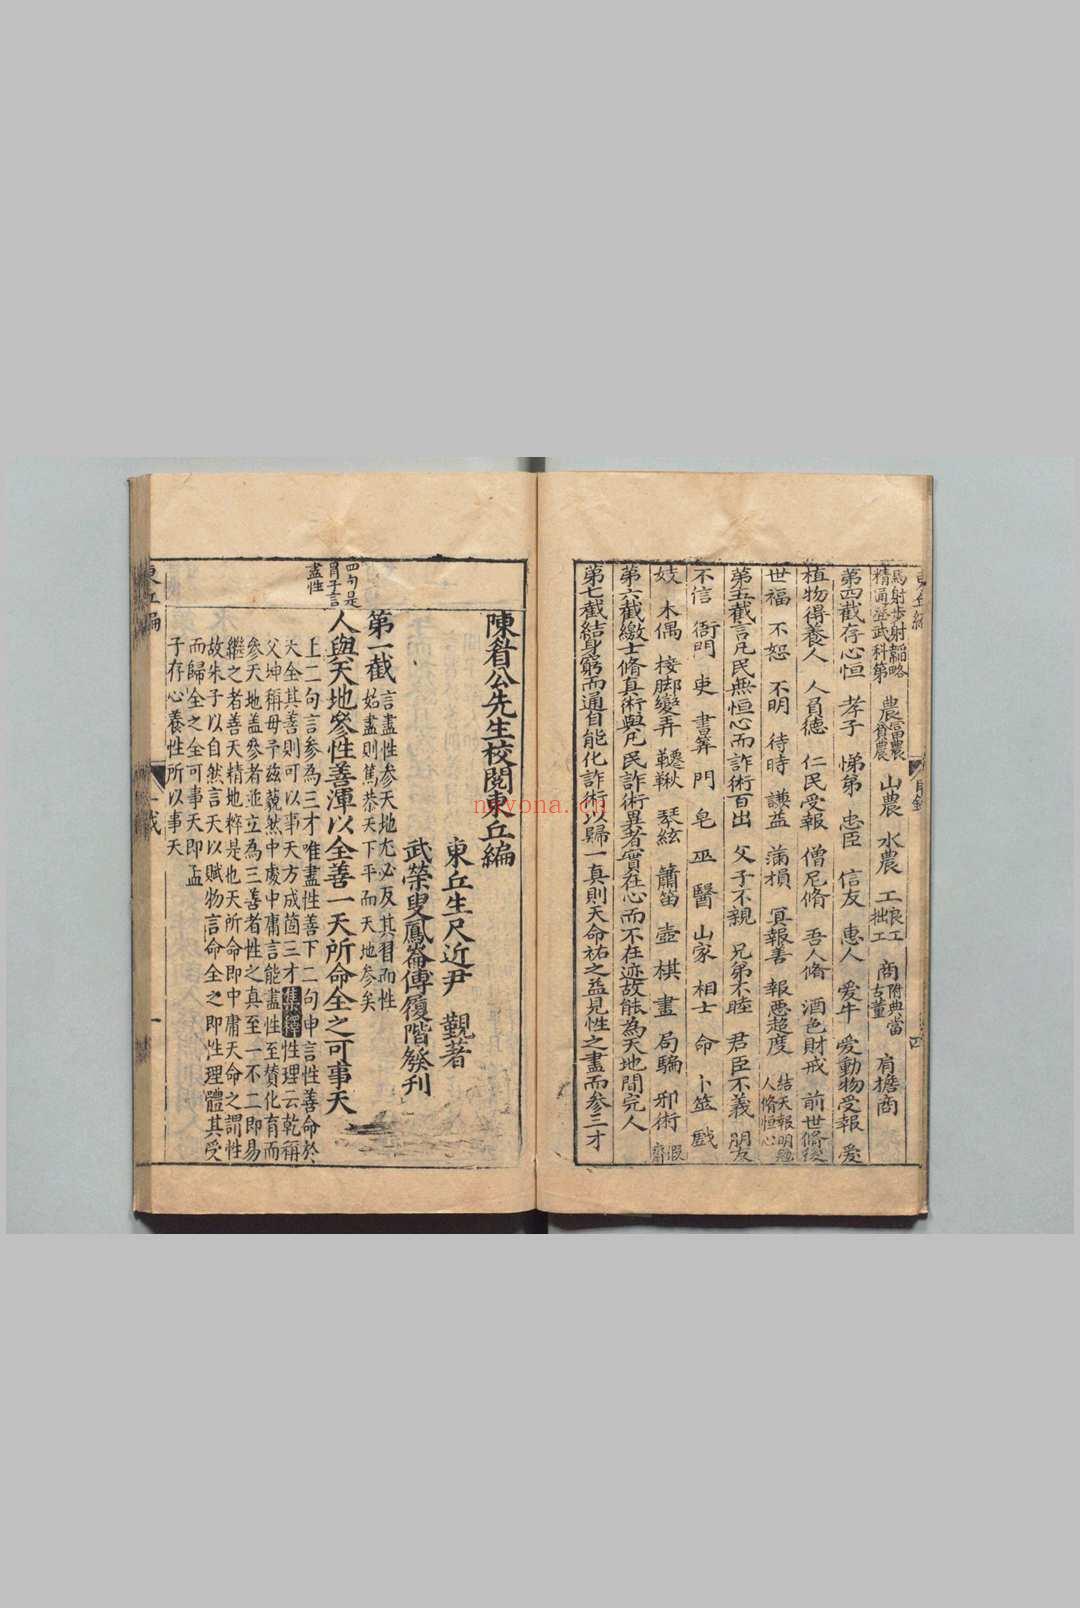 馬射步射韜略
精通登武科第　農富農貧農　山農　水農　工良工拙工　商附典當古董　肩擔商
第四截存心恒　孝子　悌弟　忠臣　信友　惠人　愛牛　愛動物受報　愛
植物得養人　人員德　仁民受報　僧尼脩　吾人脩　酒色財戒　前世脩後
世福　不恕　不明　待時　謙益　滿損　冥報善　報惡超度　結天報明勉人脩恒心
第五截言凡民無恒心而詐術百出　父子不親　兄弟不睦　君臣不義　朋友
不信　衙門　吏　書算　門　皂　巫　醫　山家　相士　命　卜筮　戲
妓　木偶　棱脚變弄　韆鞦　琴絃　簫笛　壺　棋　畫　局騙　邪術　假齋
第六截繳士脩真術與凡民詐術異者實在心而不在迹故能為天地間完人
第七截結身窮而通自能化詐術以歸一真則天命祐之益見性之盡而參三才
目錄
四
陳省公先生校閱東丘編
東丘生尺近尹　覲著
武榮叟鳳崙傅履階發刊
第一截　言盡性參天地尤必反其習而性
始盡則篤恭天下平而天地參矣
四句是
胃子言
盡性
人與天地參性善渾以全善一天所命全之可事天
上二句言參為三才唯盡性善下二句申言性善命於
天全其善則可以事天方成箇三才集釋性理云乾稱
父坤稱母予茲藐然中處中庸言能盡性至贊化育而
參天地蓋參者並立為三善者性之真至一不二即易
繼之者善天精地粹是也天所命即中庸天命之謂性
故朱子以自然言天以賦物言命全之即性理體其受
而歸全之全可事天即孟
子存心養性所以事天
東丘編
一截
一
nayona.cn